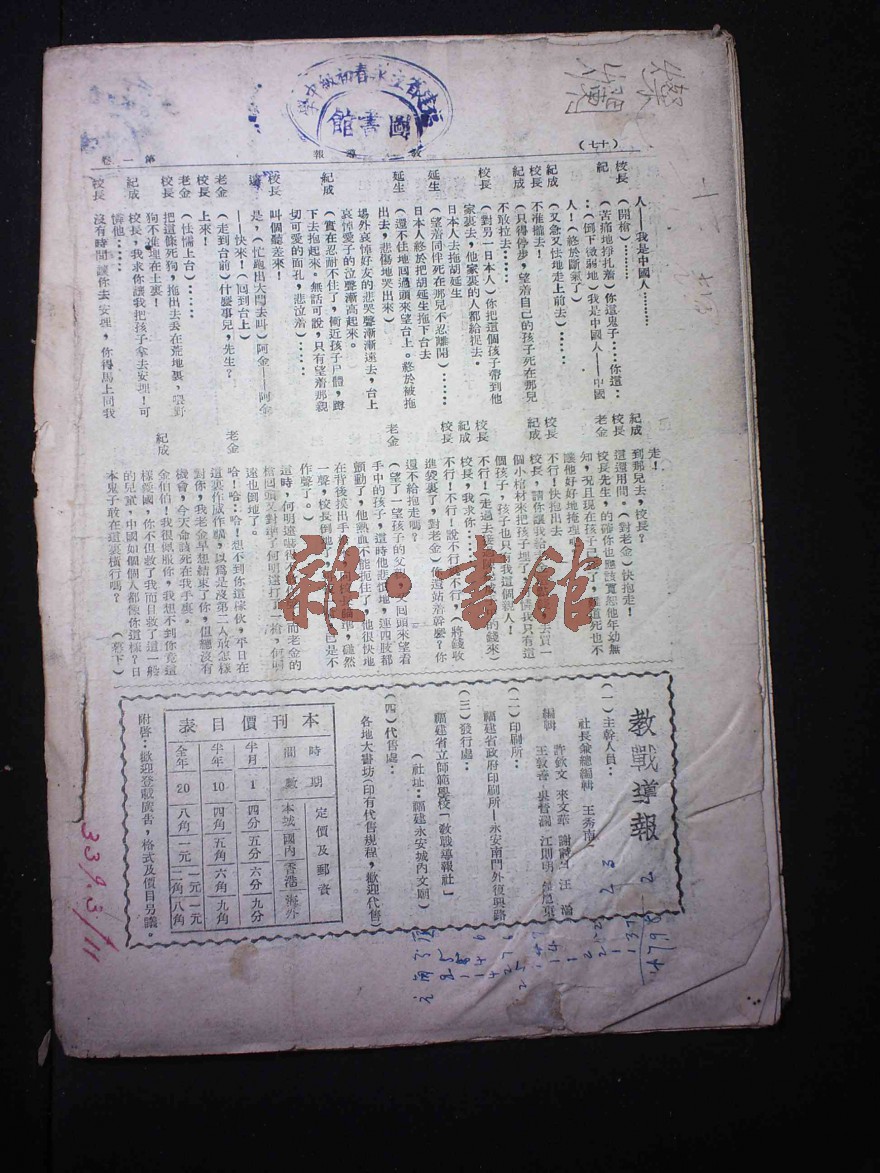 福建省立永春初級中學
圖書館
(十七)
教戰導報
第一卷
人——我是中國人………
校長 (開槍)………
紀 (苦痛地掙扎着)你這鬼子……你這‥
‥(倒下微弱地)我是中國人——中國
人!(終於斷氣了)
紀成 (又急又怯地走上前去)……
校長 不准攏去!
紀成 (只得停步,望着自己的孩子死在那兒
不敢拉去……
校長 (對另一日本人)你把這個孩子帶到他
家裏去,他家裏的人都給捉去。
日本人去拖胡延生
延生 (望着同伴死在那兒不忍離開)………
日本人終於把胡延生拖下台去
延生 (還不住地囘過頭來望台上。終於被拖
出去,悲傷地哭出來)
場外哀悼好友的悲哭聲漸漸遠去,台上
哀悼愛子的泣聲漸高起來。
紀成 (實在忍耐不住了,衝近孩子尸體,蹲
下去抱起來。無話可說,只有望着那親
切可愛的面孔,悲泣着)……
校長 叫個聽差來!
遠 是,(忙跑出大門去叫)阿金——阿金
——快來!(囘到台上)
老金 (走到台前)什麼事兒,先生?
校長 上來!
老金 (怯懦上台)……
校長 把這條死狗,拖出去丢在荒地裏,喂野
狗不准埋在土裏!
紀成 校長,我求你讓我把孩子拿去安埋!可
憐他……
校長 沒有時間讓你去安埋,你得馬上同我
走!
紀成 到那兒去,校長?
校長 還還用問。(對老金)快抱走!
老金 校長先生,的確你也應該寬恕他年幼無
知,况且現在孩子已死了,難道死也不
讓他好好地掩埋嗎?
校長 不行!快抱出去
紀成 校長,請你讓我給
去買一
個小棺材來把孩子埋了
憐我只有這
個孩子,孩子也只有我這個親人!
校長 不行!(走過去接
的錢來)
紀成 校長,我求你……
校長 不行!不行!說不行就不行,(將錢收
進袋裏了,對老金)你還站着幹麼?你
還不給抱走嗎?
老金 (望了一望孩子的父親,
回頭來望看
手中的孩子,這時他悲憤地,連四肢都
顫動了,他熱血不能抱住了,他很快地
在背後摸出手
碰然
一聲,校長倒地了,
已是不
作聲了。)
這時,何明遠嚇得
而老金的
槍囘頭又對準了何明遠打了一槍,何明
遠也倒地了。
老金 哈!哈‥哈!想不到你這傢伙,平日在
這裏作威作福,以爲是沒第二人敢怎樣
對你,我老金早想結束了你,但總沒有
機會,今天命該死在我手裏。
紀成 金伯伯!我很佩服你,我想不到你竟這
樣愛國,你不但救了我而且救了這一般
的兒童,中國如個個人都像你這樣?日
本鬼子敢在這裏橫行嗎? (幕下)
教戰導報
(一)主幹人員‥
社長兼總編輯 王秀南
編輯 許欽文 來文華 謝詩白 汪濤
王敦善 吳哲瀾 江則明
(二)印刷所‥
福建省政府印刷所—永安南門外復興路
(三)發行處‥
福建省立師範學校「敎戰導報社」
(社址‥福建永安城內文廟)
(四)代售處‥
各地大書坊(印有代售規程,歡迎代售)
本刊價目表
時間 期數 定價及郵費
本城 國內 香港 海外
半月 1 四分 五分 六分 九分
半年 10 四角 五角 六角 九角
全年 20 八角 一元 一元二角 一元八角
附啓‥歡迎登載廣告,格式及價目另議。
雜·書館
339.3/11